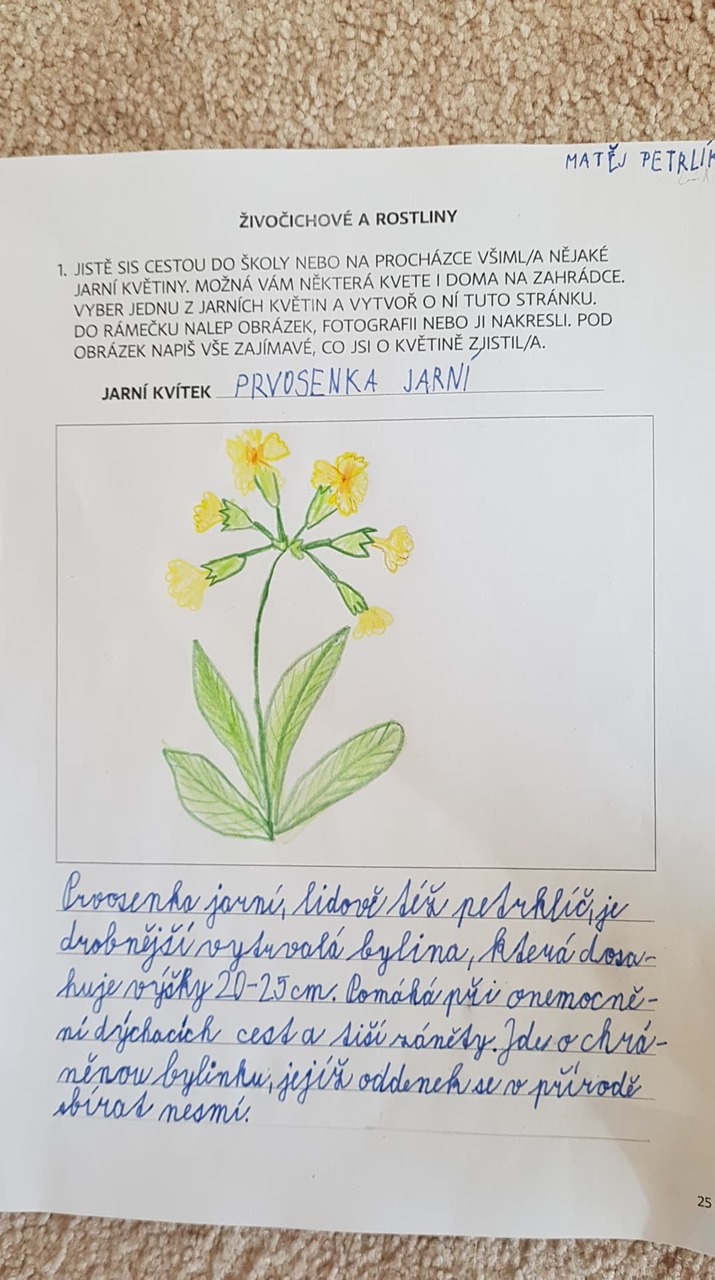 MATĚJ PETRLÍK
ŽIVOČICHOVÉ A ROSTLINY
1. JISTĚ SIS CESTOU DO ŠKOLY NEBO NA PROCHÁZCE VŠIML/A NĚJAKÉ
JARNÍ KVĚTINY. MOŽNÁ VÁM NĚKTERÁ KVETE I DOMA NA ZAHRÁDCE.
VYBER JEDNU Z JARNÍCH KVĚTIN A VYTVOŘ O NÍ TUTO STRÁNKU.
DO RÁMEČKU NALEP OBRÁZEK, FOTOGRAFII NEBO JI NAKRESLI. POD
OBRÁZEK NAPIŠ VŠE ZAJÍMAVÉ, CO JSI O KVĚTINĚ ZJISTIL/A.
JARNÍ KVÍTEK PRVOSENKA JARNÍ
Prvosenka jarní, lidově též petrklíč, je
drobnější vytrvalá bylina, která dosa-
huje výšky 20-25cm. Pomáhá při onemocně-
ní dýchacích cest a tiší záněty. Jde o chrá-
něnou bylinku, jejíž oddenek se v přírodě
sbírat nesmí.
25